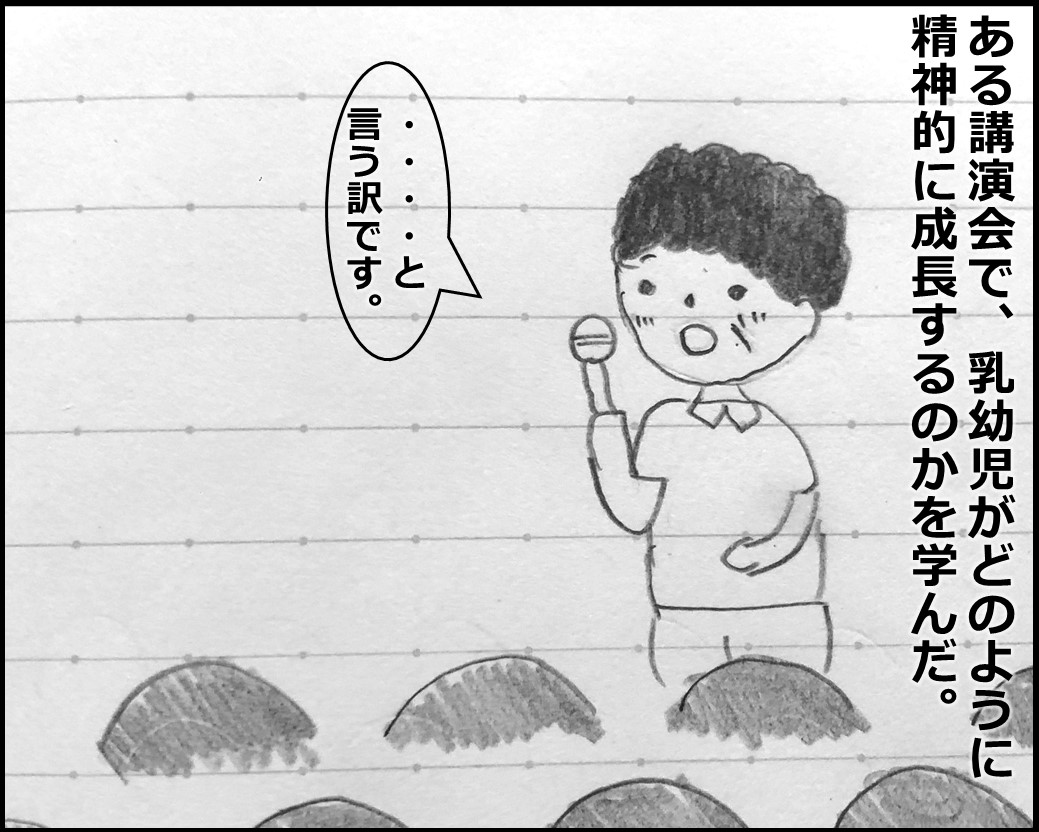 ある講演会で、乳幼児がどのように
精神的に成長するのかを学んだ。
・・・・と
言う訳です。